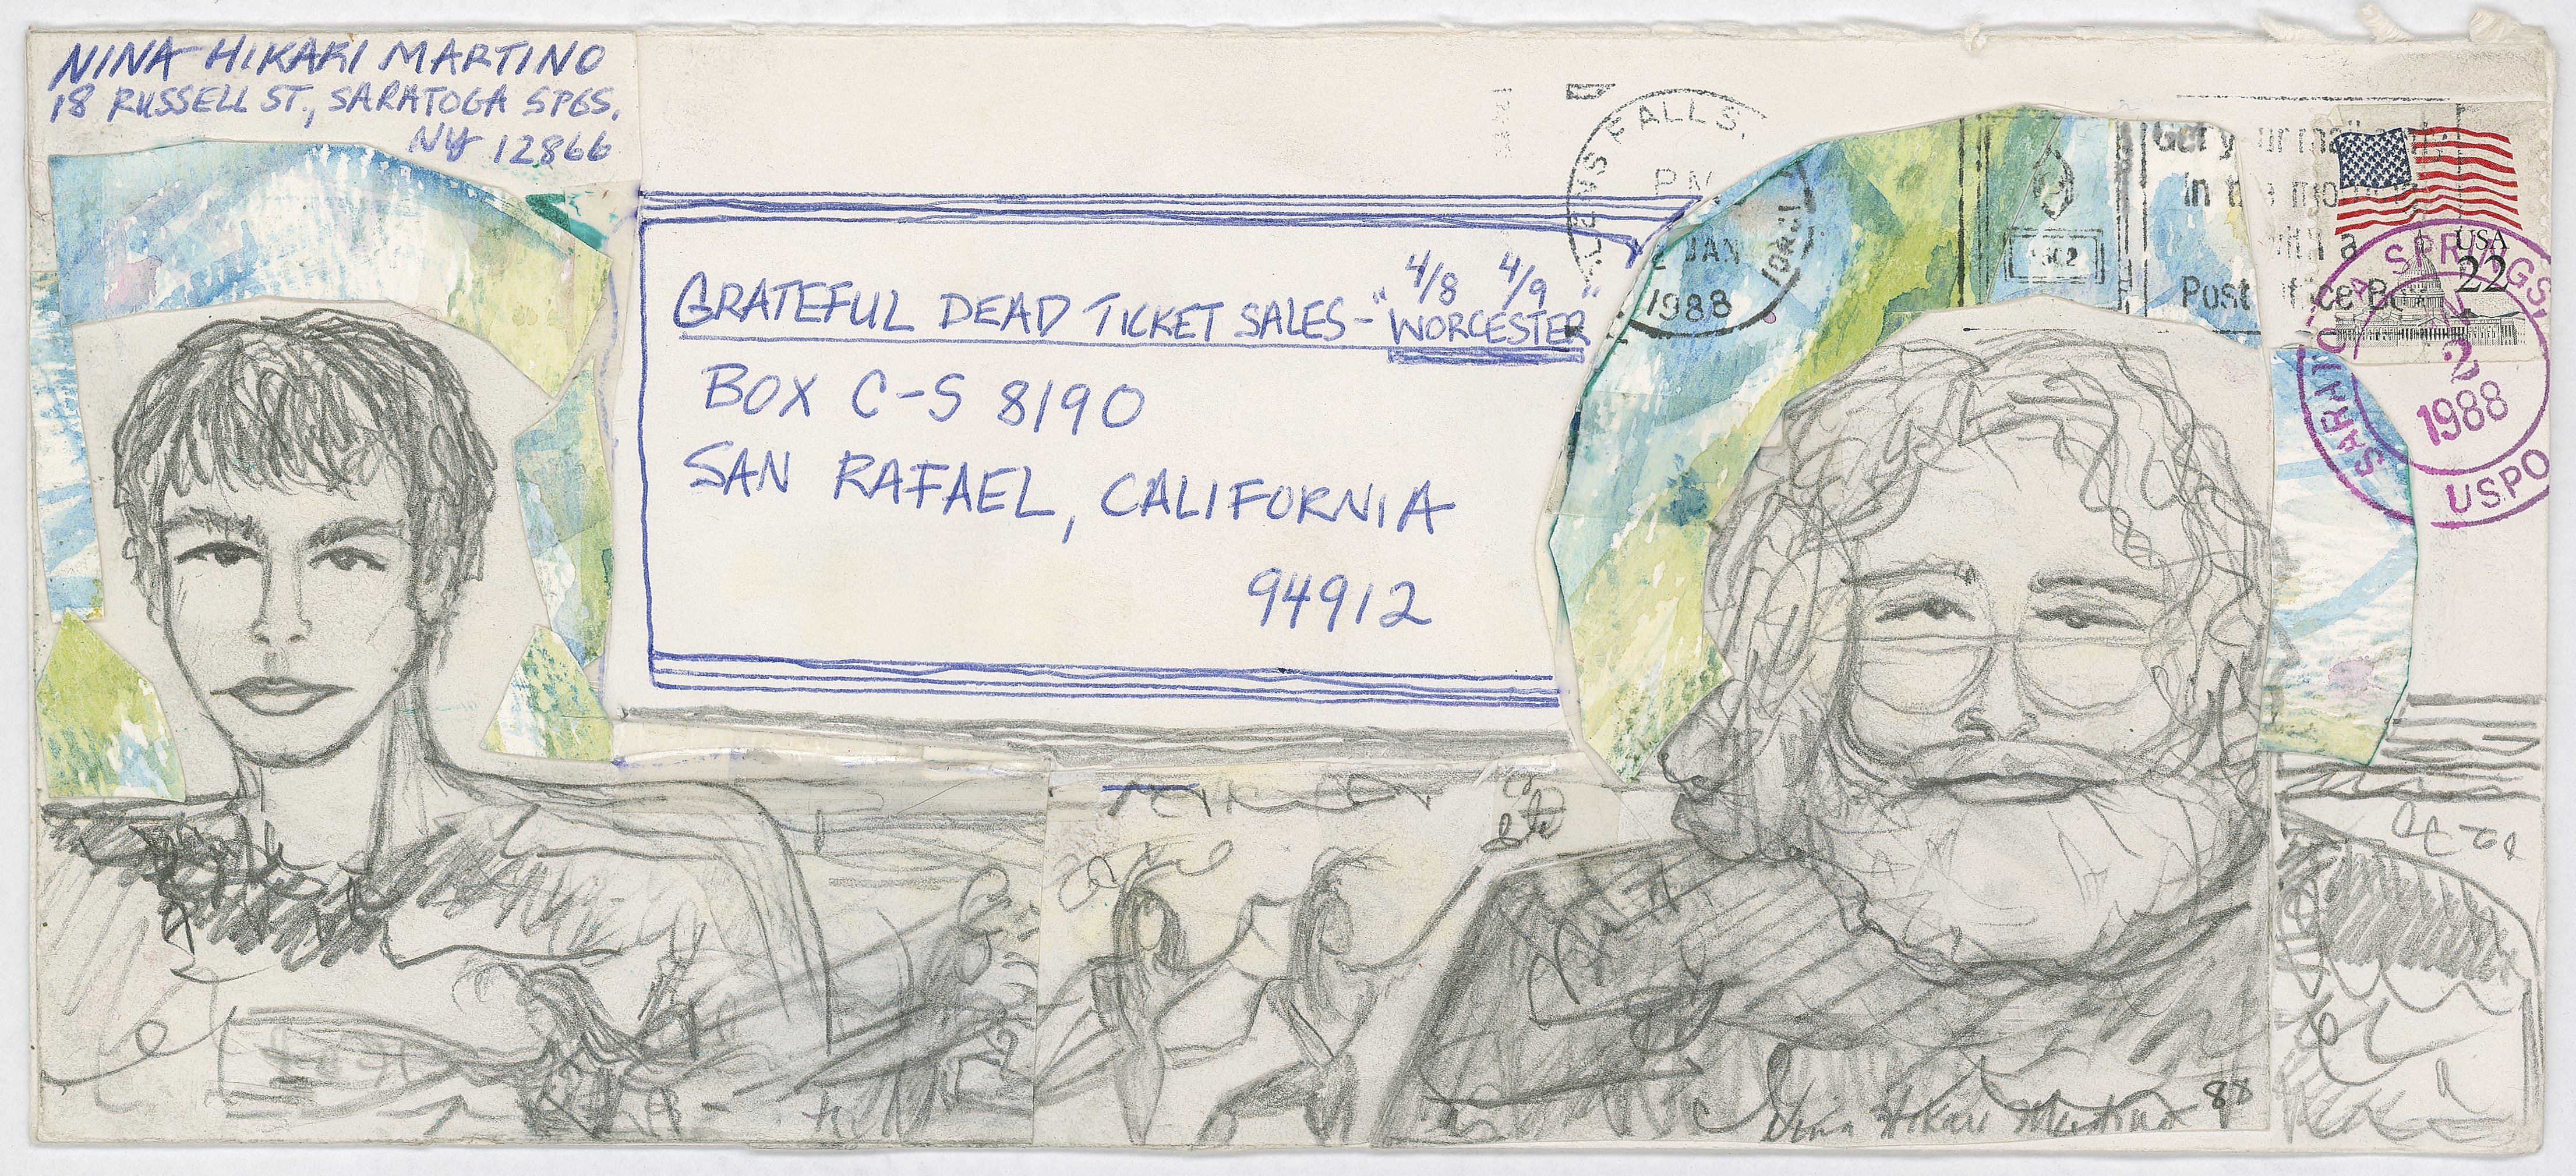 NINA HIKARI MARTINO
18 RUSSELL ST., SARATOGA SPGS.
NY 12866
4/8 4/9
GRATEFUL DEAD TICKET SALES-"WORCESTER"
BOX C-S 8190
SAN RAFAEL, CALIFORNIA
94912
FALLS.
PM
2 JAN
1988
Get your mail
in the
with a
Post Office Box
USA
22
SARATOGA SPRINGS,
2
1988
USPO
Nina Hikari Martino 88